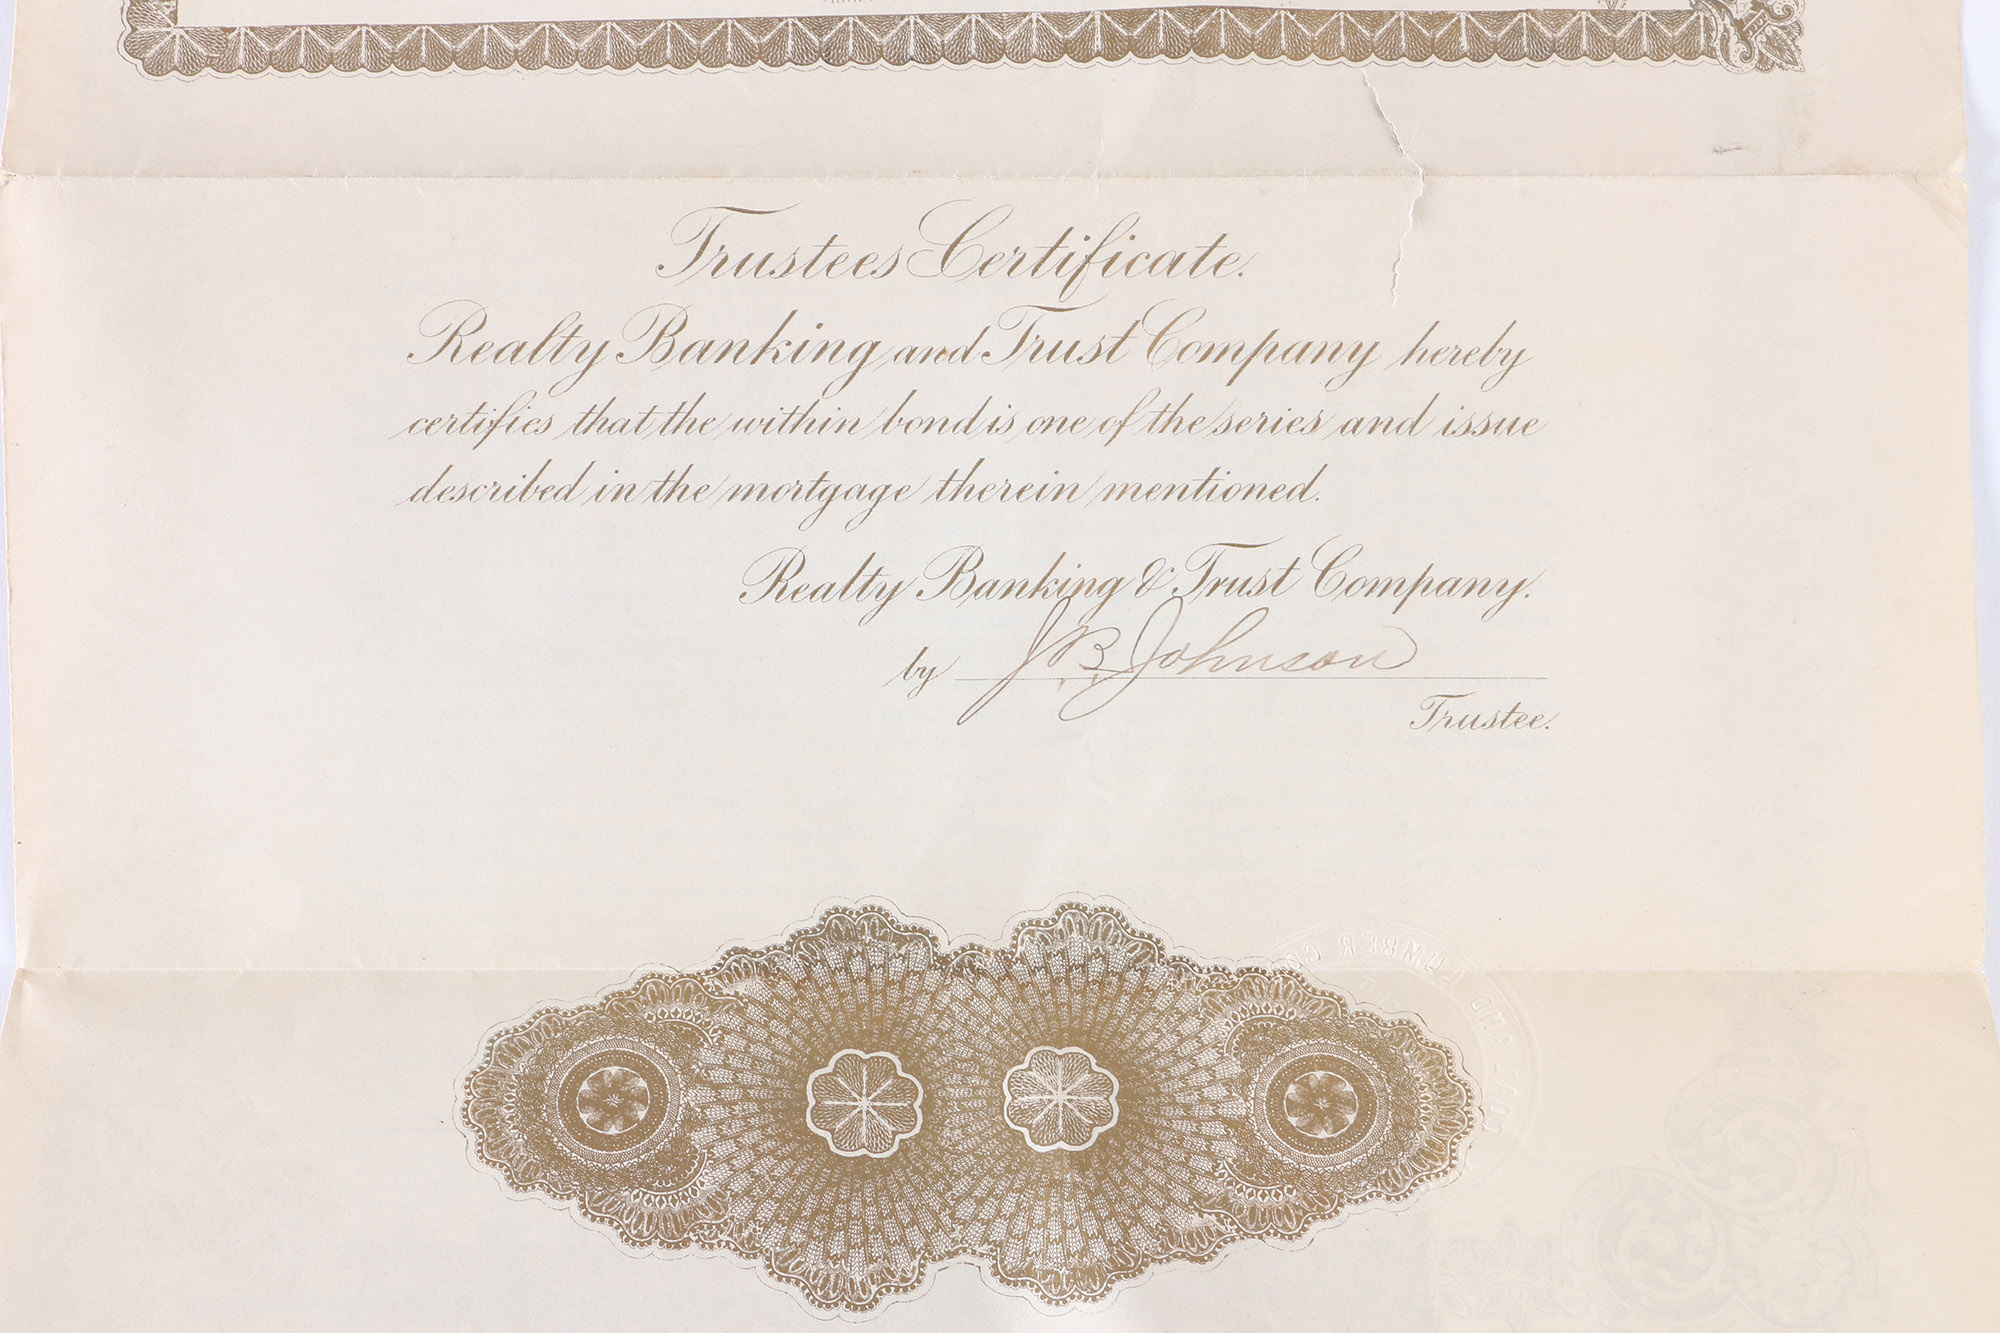 Trustees Certificate.
Realty Banking and Trust Company hereby
certifies that the within bond is one of the series and issue
described in the mortgage therein mentioned.
Realty Banking & Trust Company.
by J.B. Johnson
Trustee.